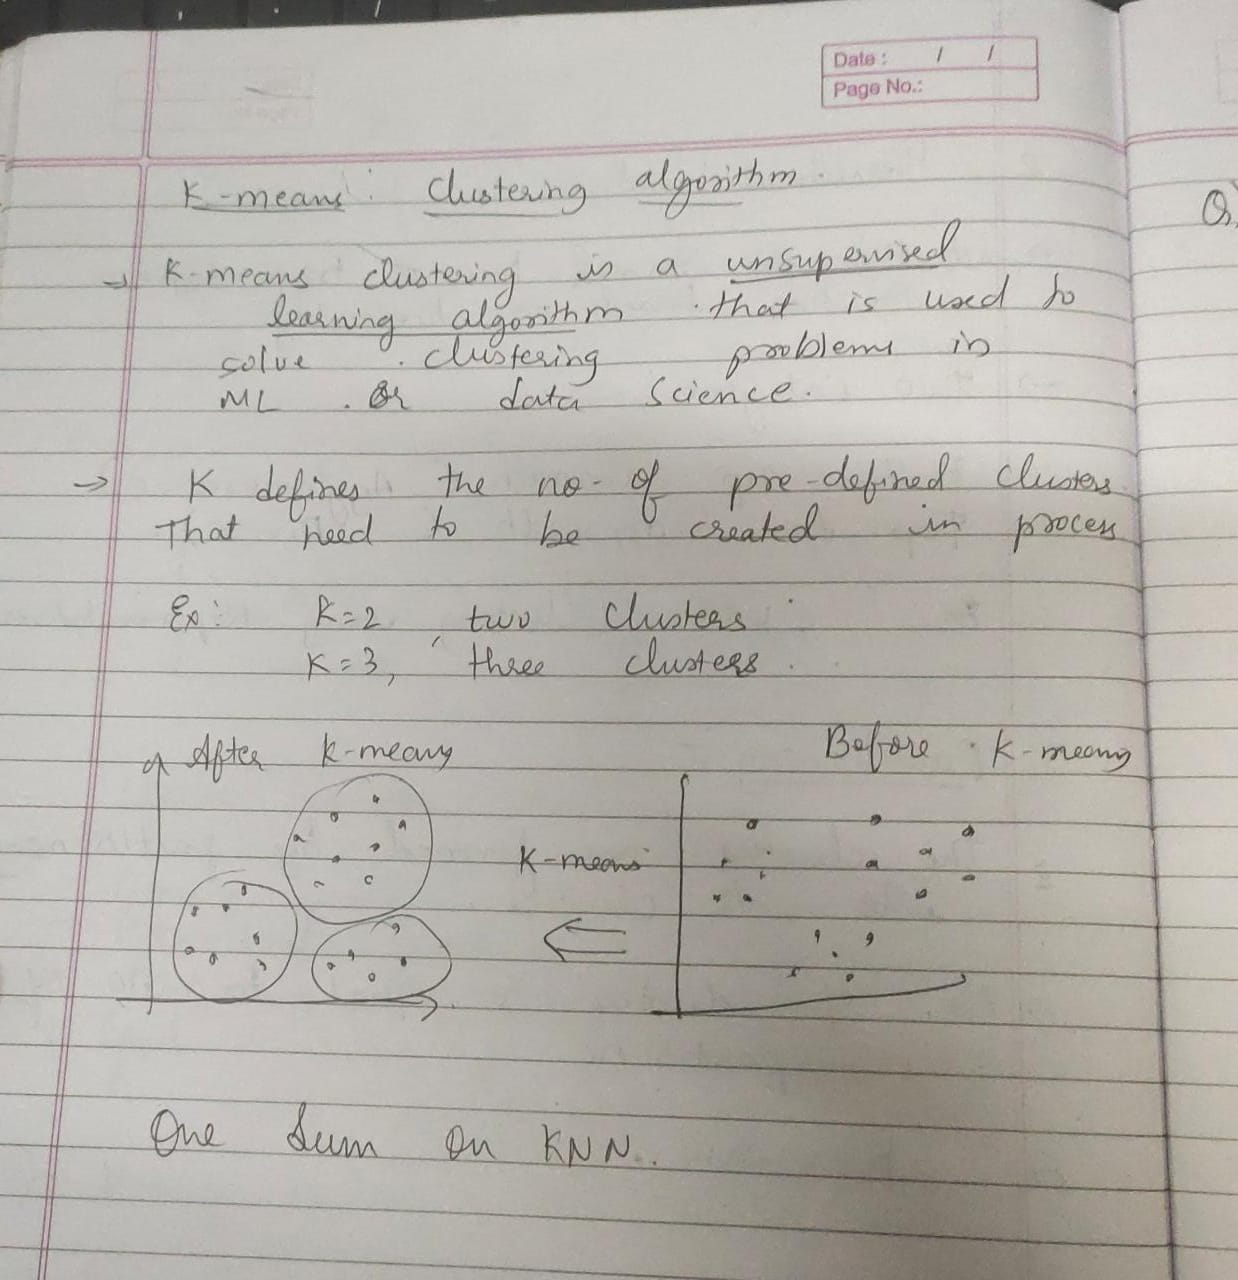 Date : / /
Page No.:
K-means : Clustering algorithm.
Q,
→ K-means clustering is a unsupervised
learning algorithm that is used to
solve clustering problems in
ML or data Science.
→ K defines the no. of pre-defined Clusters
That need to be created in process
Ex: K=2, two Clusters
K=3, three clusters.
After K-means
Before K-means
K-means
One Sum On KNN..